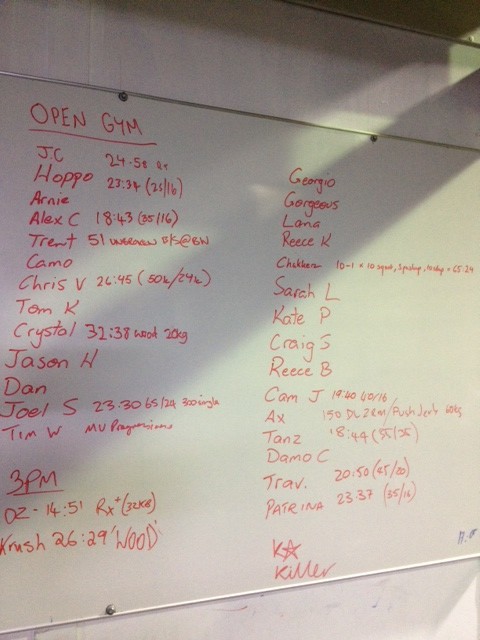 OPEN GYM
J.C 24.58 Rx
Hoppo 23:34 (35/16)
Arnie
Alex C 18:43 (35/16)
Trent 51 UNBROKEN B/S@BW
Camo
Chris V 26:45 (50k/24k)
Tom K
Crystal 32:38 WOOD 20kg
Jason H
Dan
Joel S 23.30 65/24 300 single
Tim W MU Progressions
3PM
OZ - 14:51 Rx+ (32KB)
Krush 26:29 'WOOD'
Georgio
Gorgeous
Lana
Reece K
10-1 = 10 squat,
= 65:24
Sarah L
Kate P
Craig S
Reece B
Cam J 19:40 40/16
Ax 150 DL 2RM / Push Jerk 60kg
Tanz 18:44
Damo C
Trav. 20:50
PATRINA 23:37 (35/16)
K☆
Killer